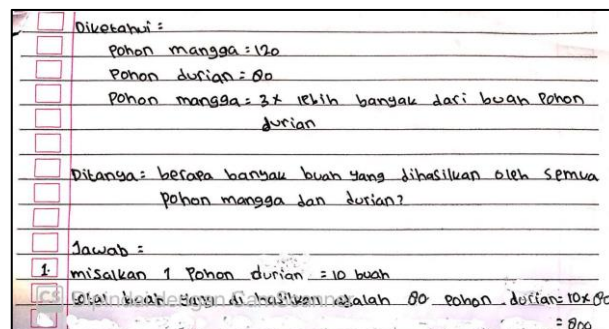 Diketahui :
Pohon mangga = 120
Pohon durian = 80
Pohon mangga = 3x lebih banyak dari buah Pohon
durian
Ditanya = berapa banyak buah yang dihasilkan oleh semua
pohon mangga dan durian?
Jawab :
1. misalkan 1 Pohon durian = 10 buah
total buah yang di hasilkan adalah 80 pohon durian = 10 x 80
= 800